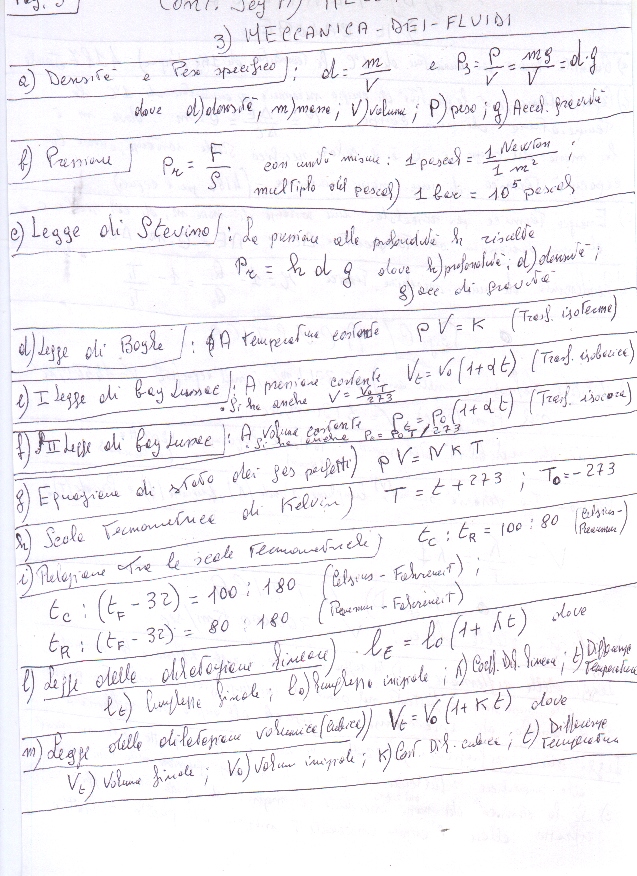 Pag. 3
3) MECCANICA-DEI-FLUIDI
a) Densità e Peso specifico: d = m/V e Ps = P/V = mg/V = d·g
dove d) densità, m) massa; V) volume; P) peso; g) Accel. gravità
b) Pressione Pr = F/S con unità misura: 1 pascal = 1 Newton/1 m²;
multiplo del pascal) 1 bar = 10⁵ pascal
c) Legge di Stevino: La pressione alla profondità h risulta
Pr = h d g dove h) profondità; d) densità;
g) acc. di gravità
d) Legge di Boyle: A temperatura costante pV = K (Trasf. isoterma)
e) I Legge di Gay Lussac: A pressione costante Vt = V0 (1+αt) (Trasf. isobarica)
• Si ha anche V = V0 T/273
f) II Legge di Gay Lussac: A volume costante Pt = P0 (1+αt) (Trasf. isocora)
• Si ha anche Pt = P0 T/273
g) Equazione di stato dei gas perfetti) pV = NKT
h) Scala Termometrica di Kelvin) T = t + 273 ; T0 = -273
i) Relazione tra le scale termometriche) tC : tR = 100 : 80 (Celsius-Reaumur)
tC : (tF - 32) = 100 : 180 (Celsius - Fahreneit) ;
tR : (tF - 32) = 80 : 180 (Reaumur - Fahreneit)
l) Legge della dilatazione lineare) lt = l0 (1+λt) dove
lt) lunghezza finale; l0) lunghezza iniziale; λ) Coeff. Dil. lineare; t) Differenza Temperatura
m) Legge della dilatazione volumica (cubica)) Vt = V0 (1+Kt) dove
Vt) Volume finale; V0) Volum iniziale; K) Coef. Dil. cubica; t) Differenza Temperatura